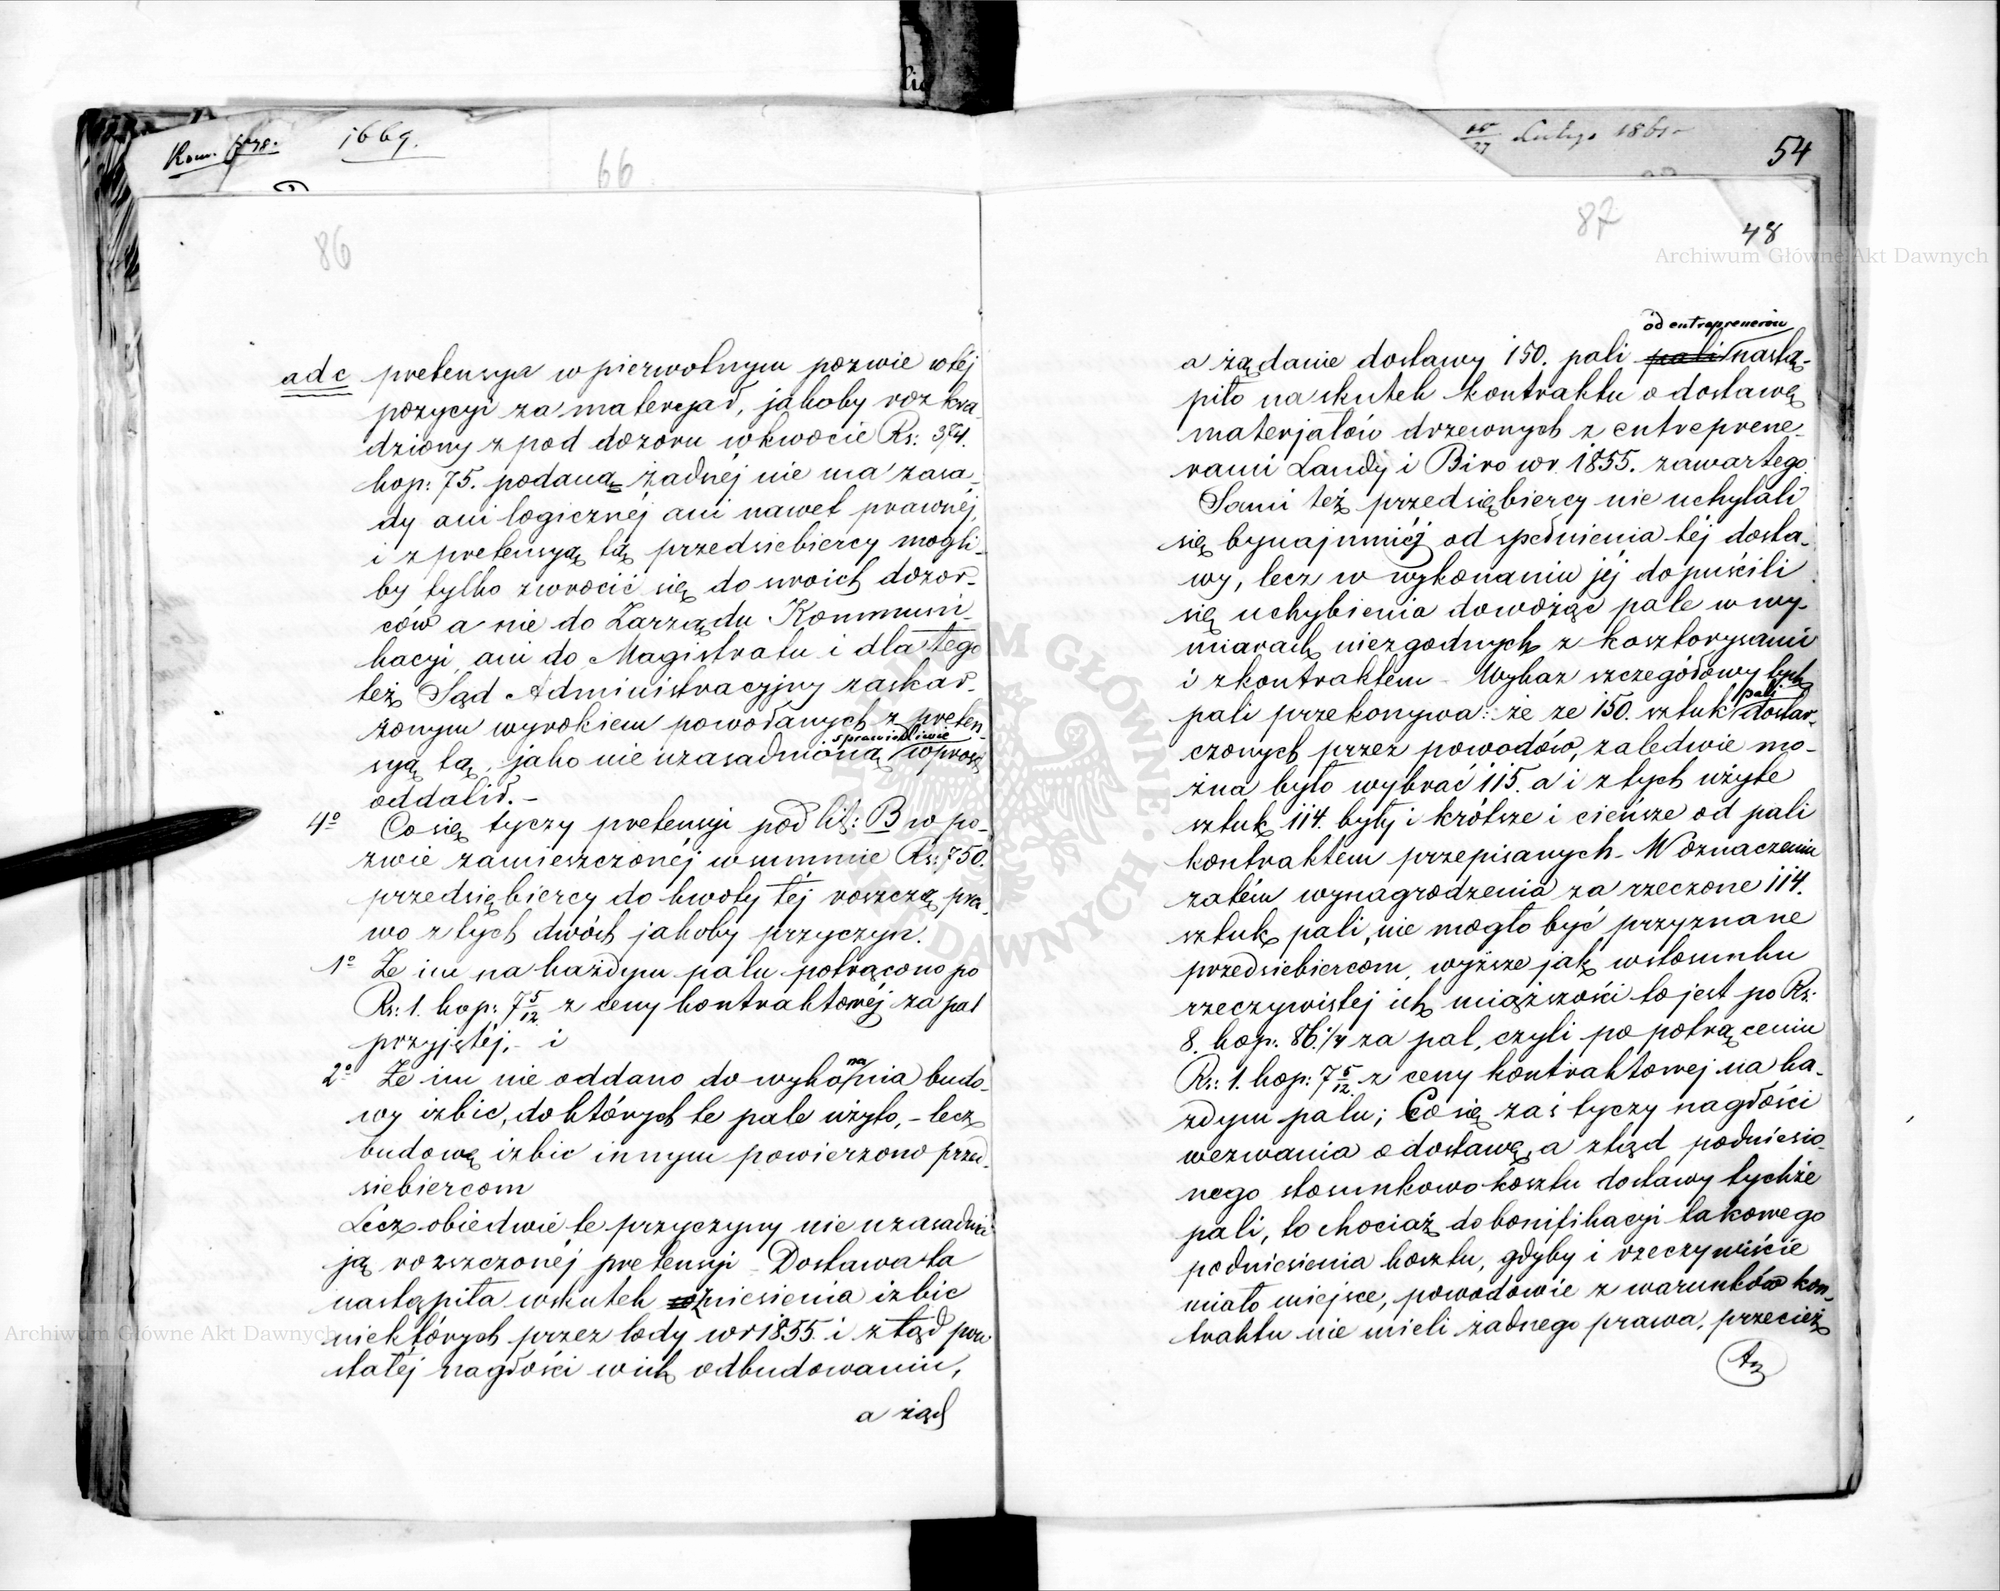 1669.
66
86
ad c pretensya w pierwotnym pozwie w téj
pozycyi za materyał, jakoby rozkra-
dziony z pod dozoru w kwocie Rs: 374.
kop: 75. podana żadnéj nie ma zasa-
dy ani logicznéj ani nawet prawnéj,
i z pretensyą tą przedsiebiercy mogli-
by tylko zwrócić się do swoich dozor-
ców a nie do Zarządu Kommuni-
kacyi ani do Magistratu i dla tego
też Sąd Administracyjny zaskar-
żonym wyrokiem powodanych z preten-
syą tą, jako nie uzasadnioną sprawiedliwie wprost
oddalił. –
4o Co się tyczy pretensyi pod lit: B w po-
zwie zamieszczonéj w summie Rs: 750.
przedsiębiercy do kwoty téj roszczą pra-
wo z tych dwóch jakoby przyczyn.
1o Że im na każdym palu potrącono po
Rs: 1. kop: 7 5/12 z ceny kontraktowéj za pal
przyjętéj, – i
2o Że im nie oddano do wykonania budo-
wy izbic, do których te pale użyto, – lecz
budowę izbic innym powierzono przed-
siebiercom
Lecz obiedwie te przyczyny nie uzasadnia-
ją rozszczonéj pretensyi – Dostawa ta
nastąpiła wskutek zniesienia izbic
niektórych przez lody w r 1855. i ztąd pow
stałéj nagłości w ich odbudowaniu,
a żąd
Lutego 1861
54
87
48
a żądanie dostawy 150. pali pali od entreprenerów nastą-
piło na skutek kontraktu o dostawę
materjałów drzewnych z entreprene-
rami Landy i Biro w r 1855. zawartego.
Sami też przedsiębiercy nie uchylali
się bynajmniéj od spełnienia téj dosta-
wy, lecz w wykonaniu jéj dopuścili
się uchybienia dowożąc pale w wy-
miarach niezgodnych z kosztorysami
i z kontraktem – Wykaz szczegółowy tych
pali przekonywa: że ze 150. sztuk pali dostar-
czonych przez powodów, zaledwie mo-
żna było wybrać 115. a i z tych użyte
sztuk 114. były i krótsze i cieńsze od pali
kontraktem przepisanych – W oznaczeniu
zatém wynagrodzenia za rzeczone 114.
sztuk pali, nie mogło być przyznane
przedsiebiercom wyższe jak w stosunku
rzeczywistej ich miąższości to jest po Rs:
8. kop: 86. 1/4 za pal, czyli po potrąceniu
Rs: 1. kop: 7 5/12. z ceny kontraktowej na ka-
żdym palu; Co się zaś tyczy nagłości
wezwania o dostawę, a ztąd podniesio-
nego stosunkowo kosztu dostawy tychże
pali, to chociaż do bonifikacyi takowego
podniesienia kosztu, gdyby i rzeczywiście
miało miejsce, powodowie z warunków kon-
traktu nie mieli żadnego prawa, przecież
Archiwum Główne Akt Dawnych
Archiwum Główne Akt Dawnych